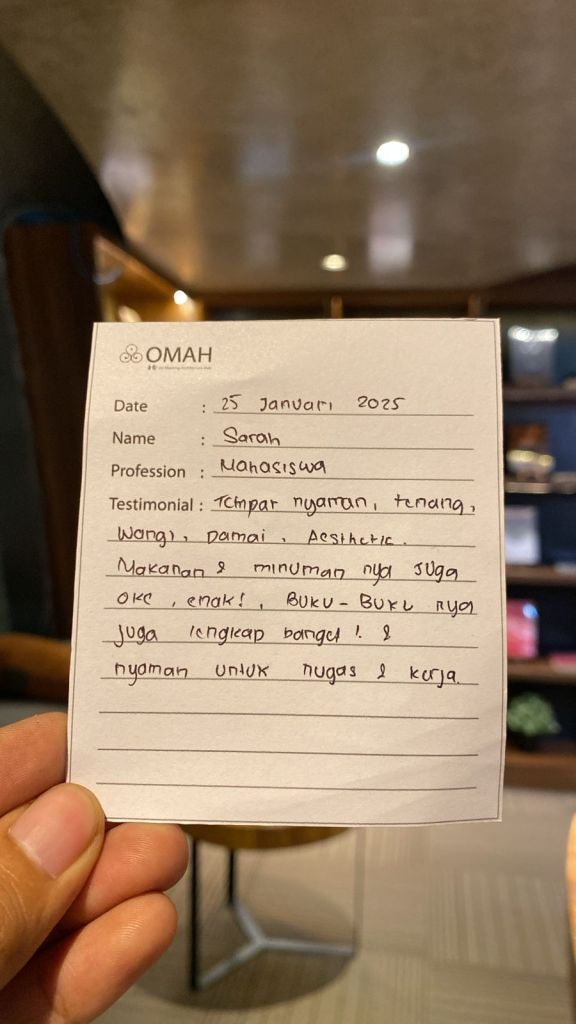 OMAH
Date : 25 Januari 2025
Name : Sarah
Profession : Mahasiswa
Testimonial : Tempat nyaman, tenang,
Wangi, Damai, Aesthetic.
Makanan & minuman nya juga
oke, enak!, Buku-Buku nya
juga lengkap banget! &
nyaman untuk nugas & kerja.